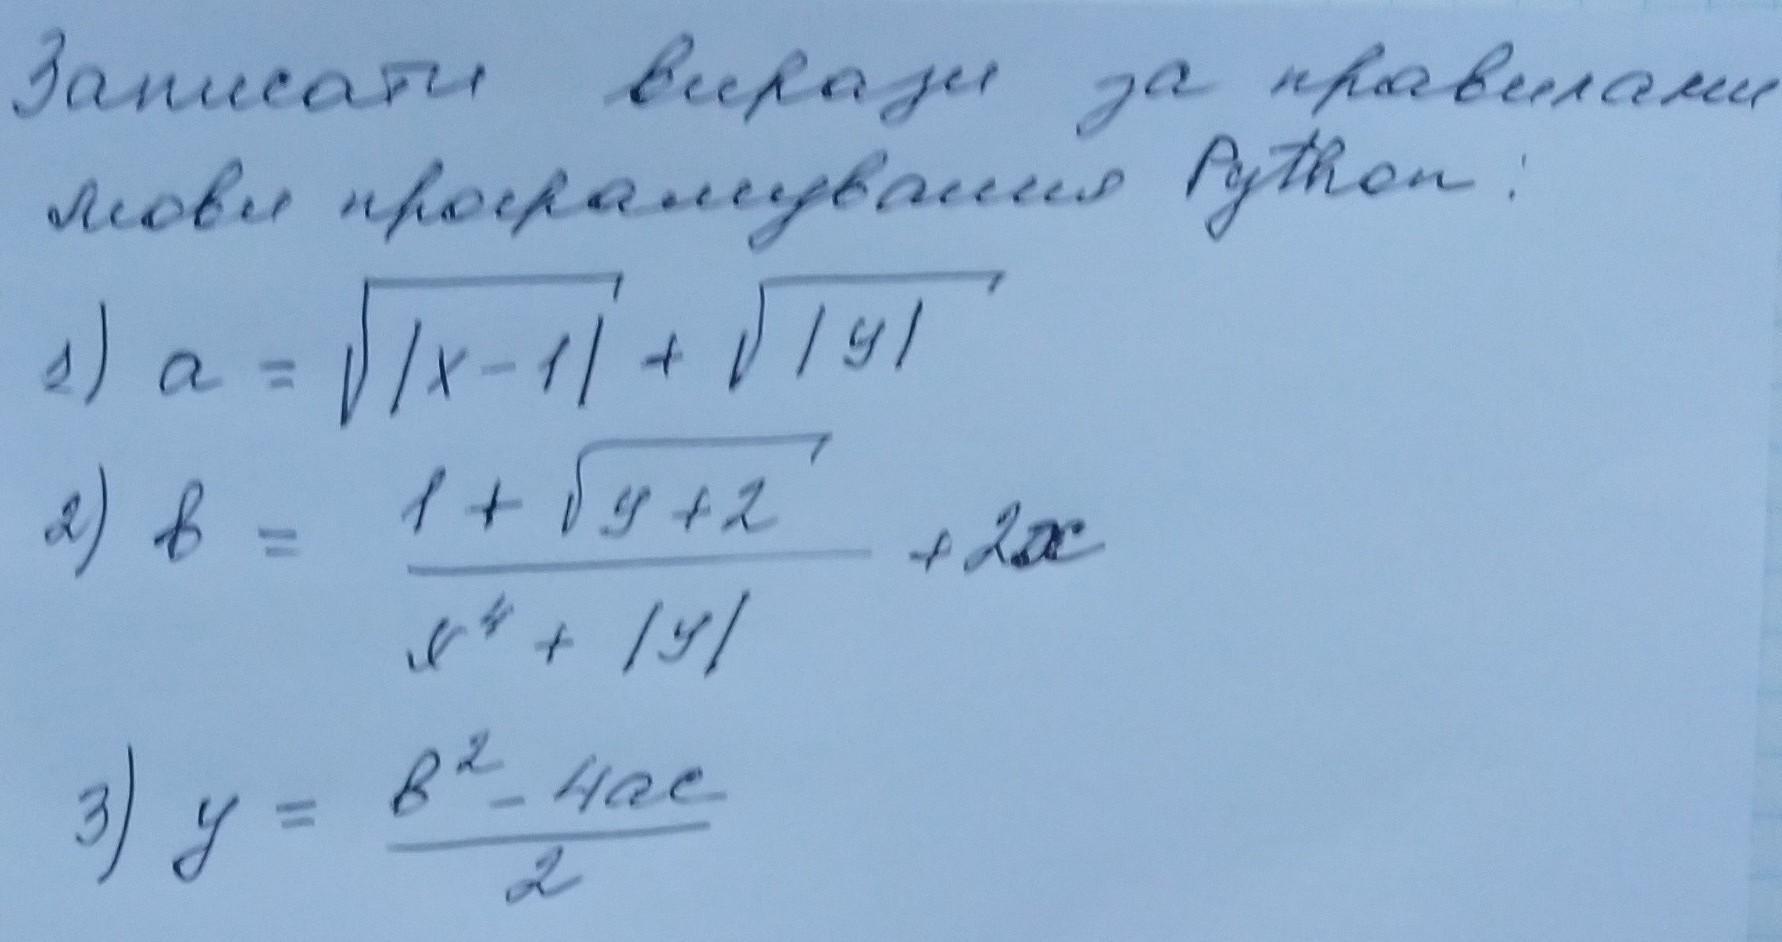 Записати вирази за правилами
мови програмування Python:
1) a = √|x-1| + √|y|
2) b = (1 + √(y+2)) / (x⁴ + |y|) + 2x
3) y = (b² - 4ac) / 2